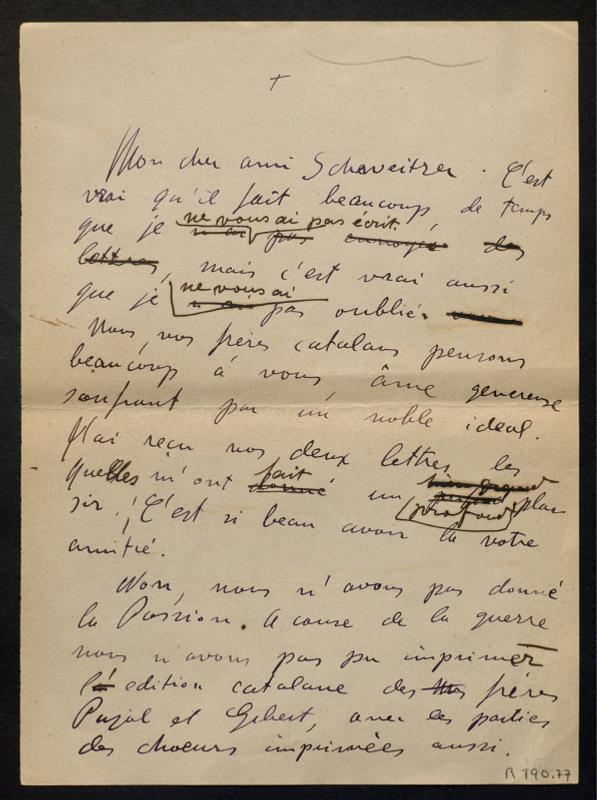 +
Mon cher ami Schaveitzer. C'est
vrai qu'il fait beaucoup de temps
que je ne vous ai pas écrit,
n'ai pas envoyé des
lettres, mais c'est vrai aussi
que je ne vous ai
n'ai pas oublié.
Nous, vos frères catalans pensons
beaucoup à vous, âme genereuse
soufrant par un noble ideal.
J'ai reçu vos deux lettres les
quelles m'ont fait donné un profond plai
sir. C'est si beau avoir la votre
amitié.
Non, nous n'avons pas donné
la Passion. A cause de la guerre
nous n'avons pas pu imprimer
l'édition catalane des frères
Pujol et Gibert, avec les parties
des choeurs imprimées aussi.
R 190.77